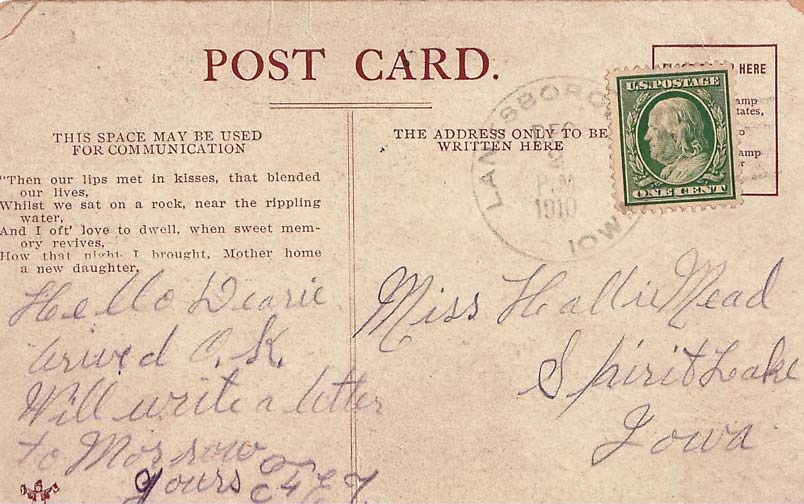 POST CARD.
THIS SPACE MAY BE USED
FOR COMMUNICATION
THE ADDRESS ONLY TO BE
WRITTEN HERE
HERE
U.S. POSTAGE
ONE CENT
DEC
P.M.
1910
IOWA
"Then our lips met in kisses, that blended
our lives,
Whilst we sat on a rock, near the rippling
water,
And I oft' love to dwell, when sweet mem-
ory revives,
How that night I brought, Mother home
a new daughter,
Hello Dearie
arived O.K.
Will write a letter
to Morrow
Yours
Miss Hallie Mead
Spirit Lake
Iowa